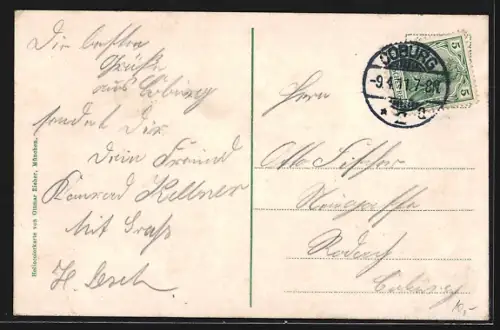 Die besten
Grüße
aus Coburg
sendet Dir
Dein Freund
Konrad Kellner
Mit Gruß
H.
Heliocolorkarte von Ottmar Zieher, München.
COBURG
-9.4.11.7-8N.
5
5
Herrn
Otto Fischer
Rodach
Coburg
10,-